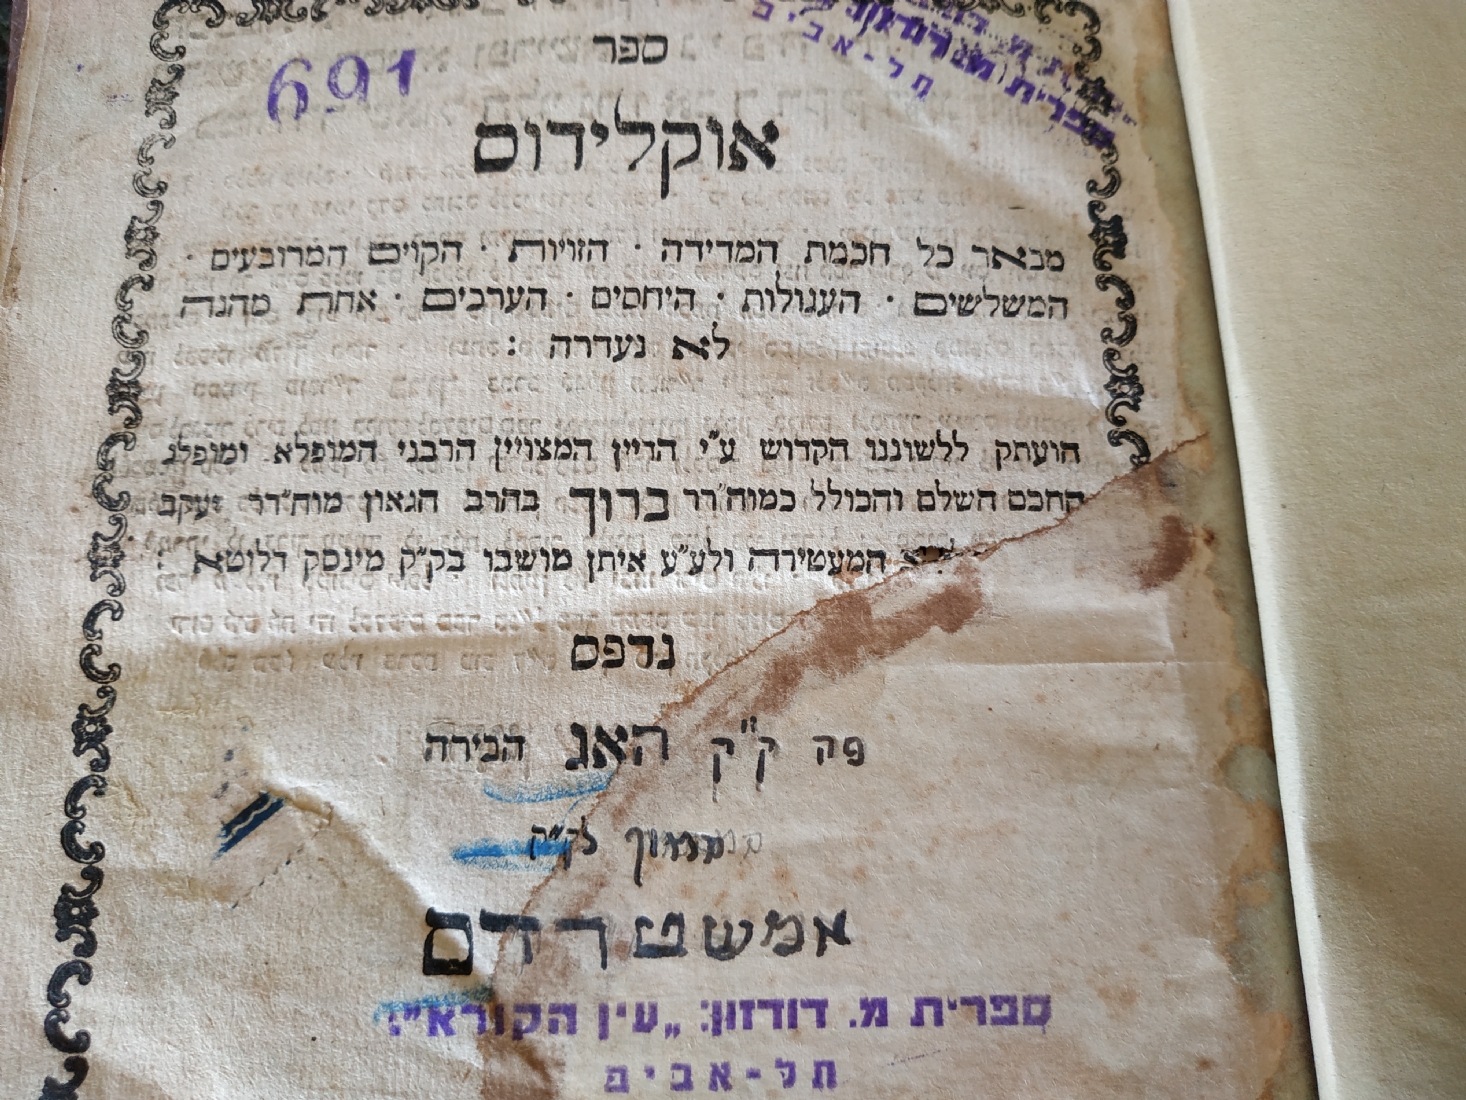 ספר
691
ספרית מ. דודזון
תל-אביב
אוקלידוס
מבאר כל חכמת המדידה · הזויות · הקוים המרובעים ·
המשלשים · העגולות · היחסים · הערכים · אחת מהנה
לא נעדרה :
הועתק ללשוננו הקדוש ע"י הדיין המצויין הרבני המופלא ומופלג
החכם השלם והכולל כמוה"רר ברוך בהרב הגאון מוה"רר יעקב
המעטירה ולע"ע איתן מושבו בק"ק מינסק דלוטא :
נדפס
פה ק"ק האג הבירה
סמוך לק"ק
אמשטרדם
ספרית מ. דודזון: „עין הקורא"!
תל-אביב